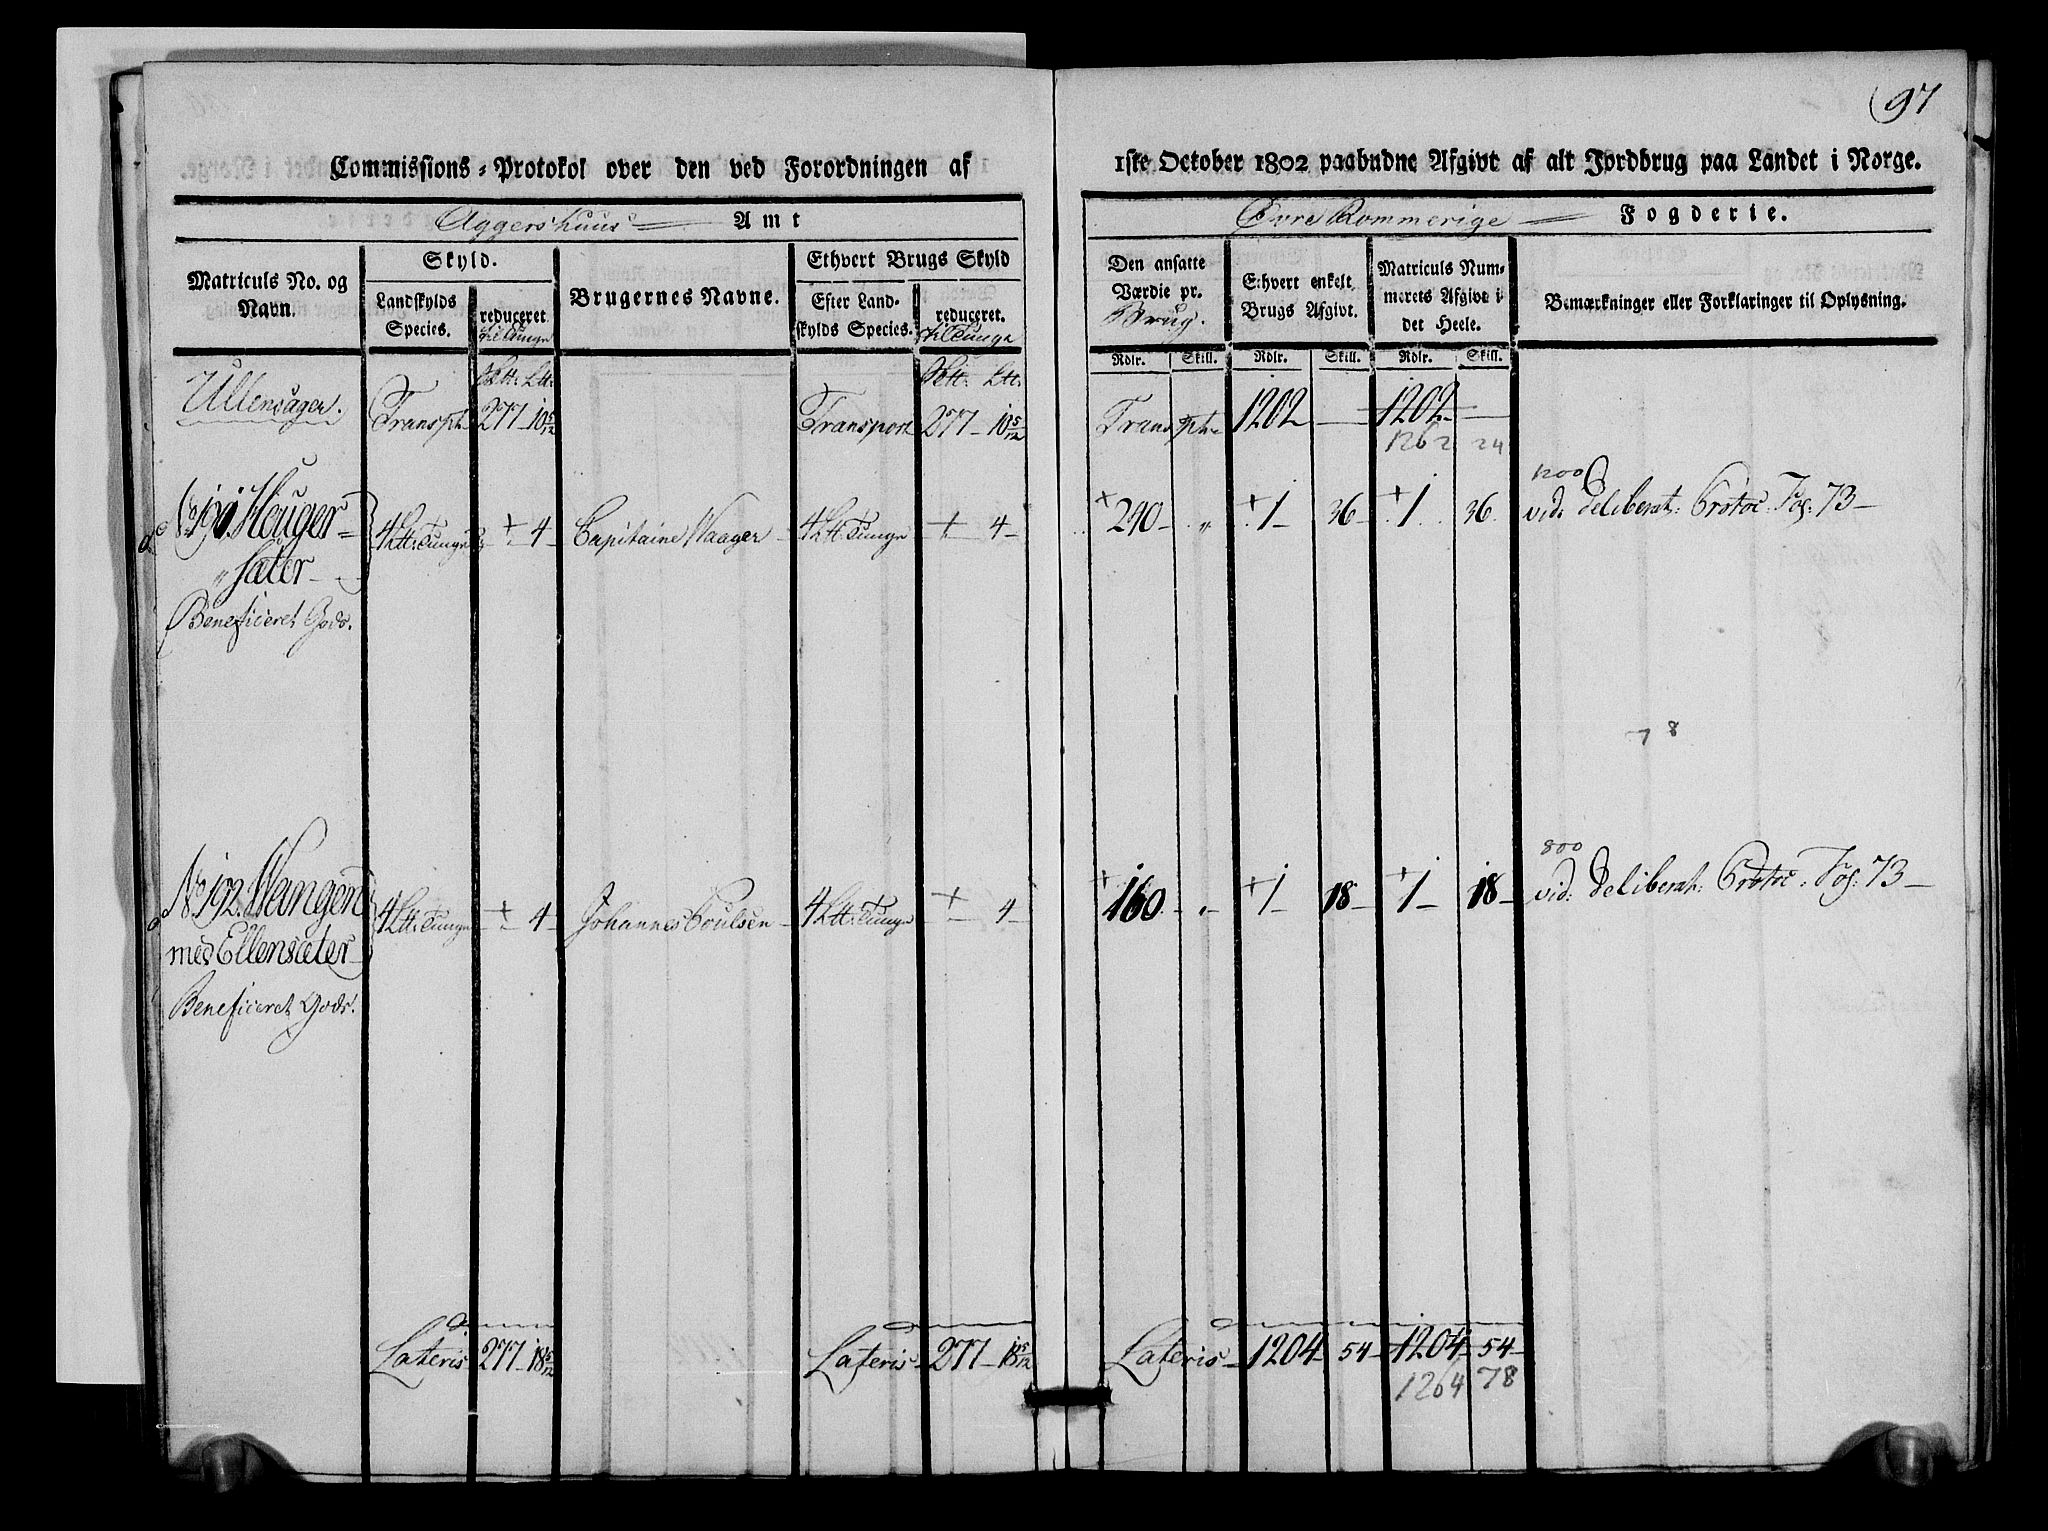 97
Commissions-Protokol over den ved Forordningen af
1ste October 1802 paabudne Afgivt af alt Jordbrug paa Landet i Norge.
Aggershuus Amt
Øvre Rommerige Fogderie.
Matriculs No. og Navn.
Skyld.
Landskylds Species.
reduceret til Tunge
Brugernes Navne.
Ethvert Brugs Skyld
Efter Landskylds Species.
reduceret. til Tunge
Den ansatte Værdie pr. Brug.
Ethvert enkelt Brugs Afgivt.
Matriculs Nummerets Afgivt i det Heele.
Bemærkninger eller Forklaringer til Oplysning.
Rdlr. Skill. Rdlr. Skill. Rdlr. Skill.
Ullensager. Transpt. 277 - 10 5/12 Transport 277 - 10 5/12 Transpt. 1202 - 1202 -
1262 24
1200
No 191. Heuger= 4 Ltt: Tunge + 4 - Capitaine Waager - 4 Ltt: Tunge + 4 - + 240 - „ + 1 36 + 1 36 vid: Deliberat: Protoc: Fog: 73 -
„ sæter -
Beneficeret Gods.
78
800
No 192. Wangen 4 Ltt: Tunge + 4 - Johannes Poulsen - 4 Ltt: Tunge + 4 - + 160 - „ - + 1 18 - + 1 18 - vid: Deliberat: Protoc: Fog: 73 -
med Ellensæter
Beneficeret Gods.
Lateris 277 - 18 5/12 Lateris - 277 - 18 5/12 Lateris - 1204 - 54 - 1204 54 -
1264 78